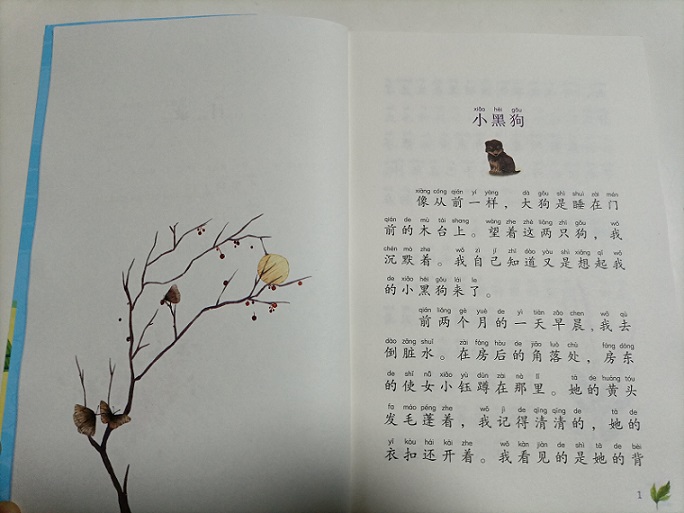 xiǎo hēi gǒu
小黑狗
xiàng cóng qián yí yàng dà gǒu shì shuì zài mén
像从前一样，大狗是睡在门
qián de mù tái shang wàng zhe zhè liǎng zhī gǒu wǒ
前的木台上。望着这两只狗，我
chén mò zhe wǒ zì jǐ zhī dào yòu shì xiǎng qǐ wǒ
沉默着。我自己知道又是想起我
de xiǎo hēi gǒu lái le
的小黑狗来了。
qián liǎng gè yuè de yì tiān zǎo chen wǒ qù
前两个月的一天早晨，我去
dào zāng shuǐ zài fáng hòu de jiǎo luò chù fáng dōng
倒脏水。在房后的角落处，房东
de shǐ nǚ xiǎo yù dūn zài nà lǐ tā de huáng tóu
的使女小钰蹲在那里。她的黄头
fa máo péng zhe wǒ jì de qīng qīng de tā de
发毛蓬着，我记得清清的，她的
yī kòu hái kāi zhe wǒ kàn jiàn de shì tā de bèi
衣扣还开着。我看见的是她的背
1